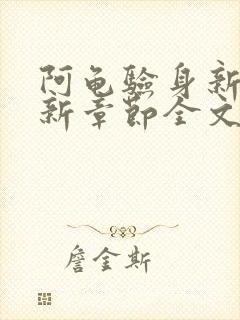 阿龟验身新
新章节全文
詹金斯